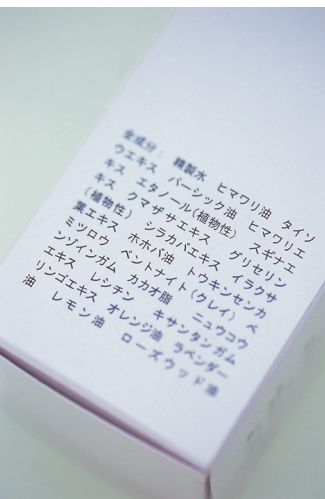 全成分： 精製水 ヒマワリ油 タイソ
ウエキス パーシック油 ヒマワリエ
キス エタノール(植物性) スギナエ
キス クマザサエキス グリセリン
(植物性) シラカバエキス イラクサ
葉エキス ホホバ油 トウキンセンカ
ミツロウ ベントナイト(クレイ) ベ
ンゾインガム カカオ脂 ニュウコウ
エキス レシチン キサンタンガム
リンゴエキス オレンジ油 ラベンダー
油 レモン油 ローズウッド油